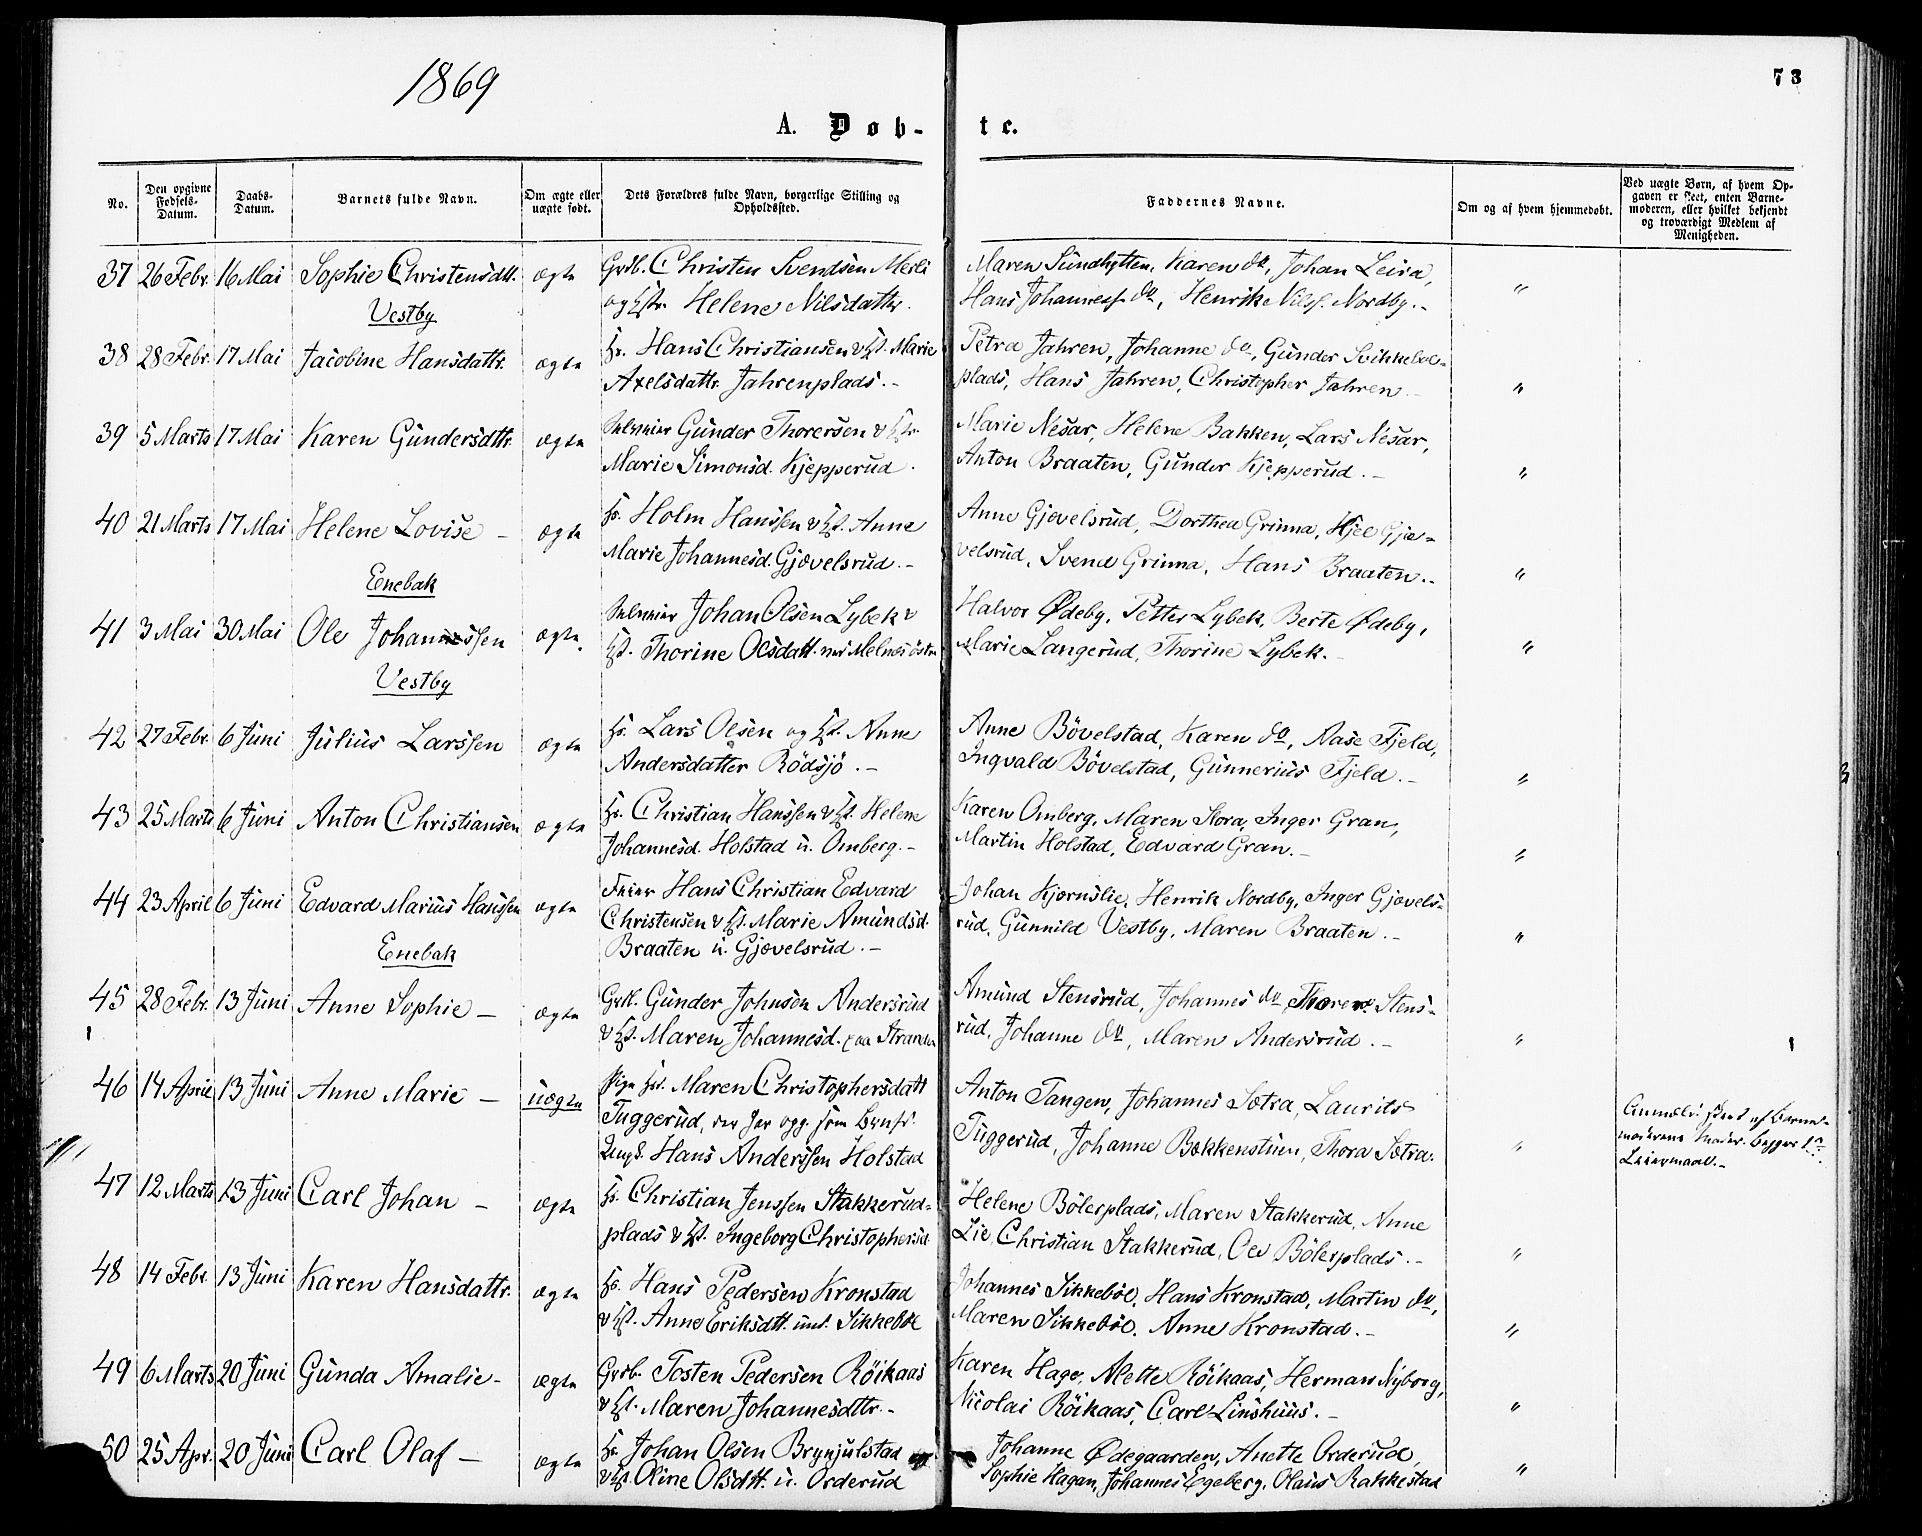 1869
73
A. Døb-
te.
No.
Den opgivne Fødsels-Datum.
Daabs-Datum.
Barnets fulde Navn.
Om ægte eller uægte født.
Dets Forældres fulde Navn, borgerlige Stilling og Opholdssted.
Faddernes Navne.
Om og af hvem hjemmedøbt.
Ved uægte Børn, af hvem Opgaven er skeet, enten Barnemoderen, eller hvilket bekjendt og troværdigt Medlem af Menigheden.
37 26 Febr. 16 Mai Sophie Christensdtt. ægte Grdb. Christen Svendsen Merli Maren Sundhytten, Karen do, Johan Leira,
og Hstr. Helene Nilsdattr. Hans Johannesf. do, Henrik Nilsf. Nordby. - "
Vestby
38 28 Febr. 17 Mai Jacobine Hansdattr. ægte Hans Christiansen & Marie Petra Jahren, Johanne do, Gunder
Axelsdattr. Jahrenplads. - plads, Hans Jahren, Christopher Jahren - "
39 5 Marts 17 Mai Karen Gundersdttr. ægte Gunder Thorersen & Marie Nesar, Helene Bakken, Lars Nesar,
Marie Simonsd. Kjepperud. Anton Braaten, Gunder Kjepperud. - "
40 21 Marts 17 Mai Helene Lovise - ægte Holm Hanssen & Anne Anne Gjevelsrud, Dorthea Grinna, Gjæ-
Marie Johannesd. Gjævelsrud. - velsrud, Svend Grinna, Hans Braaten. - "
Enebak
41 3 Mai 30 Mai Ole Johanssen ægte. Johan Olsen Lybek & Halvor Ødeby, Petter Lybek, Berte Ødeby,
Thorine Olsdatt. Marie Langerud, Thorine Lybek. - "
Vestby
42 27 Febr. 6 Juni Julius Larssen ægte Lars Olsen og Anne Anne Bøvelstad, Karen do, Aase Fjeld,
Andersdatter Rödsjö. - Ingvald Bøvelstad, Gunnerius Fjeld. - "
43 25 Marts 6 Juni Anton Christiansen ægte Christian Hanssen & Helene Karen Omberg, Maren Stora, Inger Gran,
Johannesd. Holstad u. Omberg. - Martin Holstad, Edvard Gran. - "
44 23 April 6 Juni Edvard Marius Hanssen ægte Feier Hans Christian Edvard Johan Kjærnslie, Henrik Nordby, Inger Gjævels-
Christensen & Marie Amundsd. rud, Gunnild Vestby, Maren Braaten. - "
Braaten u. Gjævelsrud. -
Enebak
45 28 Febr. 13 Juni Anne Sophie - ægte Gunder Johnsen Andersrud Amund Stensrud, Johannes do Thorer Stens-
& Maren Johannesd. paa Stranden rud, Johanne do, Maren Andersrud. - "
46 14 April 13 Juni Anne Marie - uægte Pige Maren Christophersdatt Anton Tangen, Johannes Sætra, Laurits
Tuggerud, Tuggerud, Johanne Bækkenstuen, Thora Sætra. "
Ungk. Hans Anderssen Holstad
47 12 Marts 13 Juni Carl Johan - ægte Christian Jenssen Stakkerud- Helene Bölerplads, Maren Stakkerud, Anne
plads & Ingeborg Lie, Christian Stakkerud, Ole Bölerplads. - "
48 14 Febr. 13 Juni Karen Hansdattr. ægte Hans Pedersen Kronstad Johannes Sikkeböl, Hans Kronstad, Martin do,
& Anne Eriksdtt. Sikkeböl Maren Sikkeböl, Anne Kronstad. - "
49 6 Marts 20 Juni Gunda Amalie - ægte Grdb. Tosten Pedersen Röikaas Karen Hage, Alette Röikaas, Herman Nyborg,
& Maren Johannesdttr. - Nicolai Röikaas, Carl Linshuus. - "
50 25 Apr. 20 Juni Carl Olaf - ægte Johan Olsen Brynjulstad Johanne Ødegaarden, Anette Orderud,
& Oline Olsdtt. u. Orderud Sophie Hagan, Johannes Egeberg, Olaus Rakkestad "